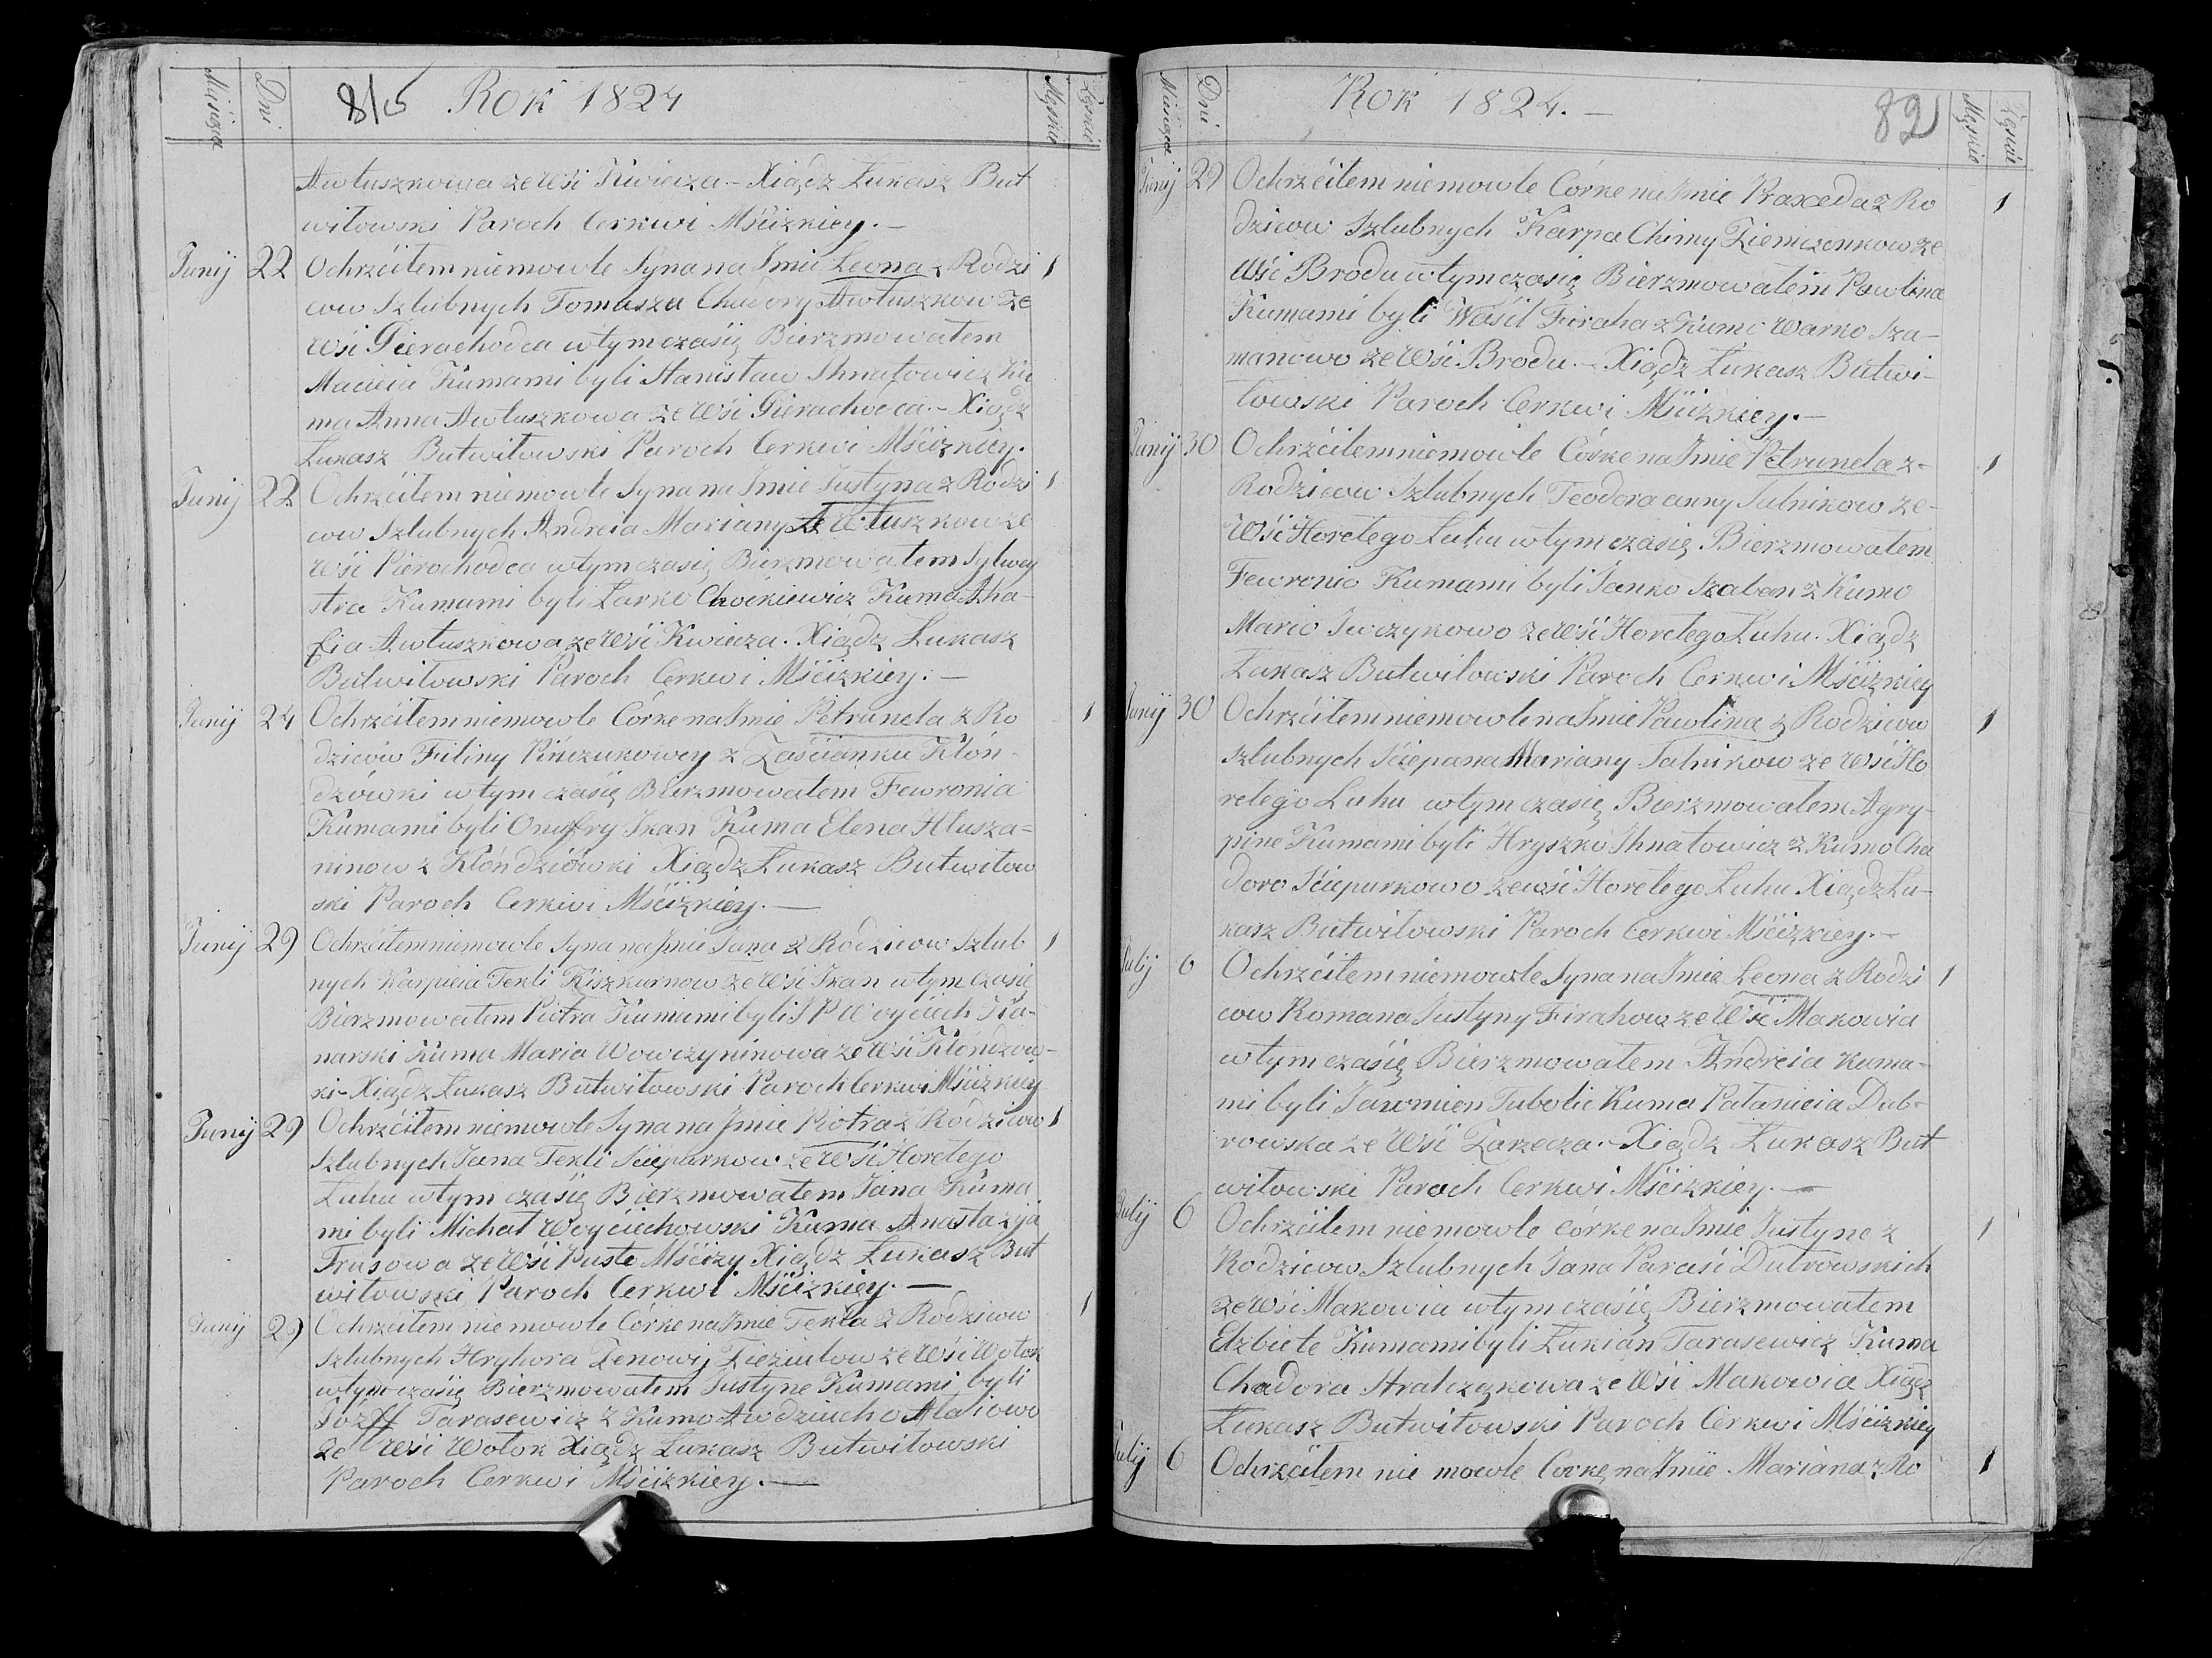 Miesiąca
Dni
8/5 Rok 1824
Męskie
Żęskie
Awłuszkowa ze Wśi Kwiecza.- Xiądz Łukasz But
wiłowski Paroch Cerkwi Mśćizkiey.-
Junij 22 Ochrzćiłem niemowle Syna na Jmie Leona z Rodzi 1
cow Szlubnych Tomasza Chadory Awłuszkow ze
Wśi Pierachodca w tym czaśię Bierzmowałem
Macieia Kumami byli Stanisław Jhnatowicz Ku
ma Anna Awłuszkowa ze Wśi Pierachodca.- Xiądz
Łukasz Butwiłowski Paroch Cerkwi Mśćizkiey.
Junij 22 Ochrzćiłem niemowle Syna na Jmie Justyna z Rodzi 1
cow Szlubnych Andreia Mariany Awłuszkow ze
Wśi Pierochodca w tym czaśię Bierzmowałem Sylwey
stra Kumami byli Łarko Choćkiewicz Kuma Aha-
fia Awłuszkowa ze Wśi Kwiecza. Xiądz Łukasz
Butwiłowski Paroch Cerkwi Mśćizkiey.-
Junij 24 Ochrzćiłem niemowle Córke na Jmie Petrunela z Ro 1
dzicow Filiny Pińczukowey z Zaśćianku Kłón-
dzówki w tym czaśię Bierzmowałem Fewronia
Kumami byli Onufry Jkan Kuma Elena Hlusza=
ninow z Kłóndziówki Xiądz Łukasz Butwiłow
ski Paroch Cerkwi Mśćizkiey.-
Junij 29 Ochrzćiłem niemowle Syna na Jmie Jana z Rodzicow Szlub 1
nych Karpieia Tekli Kiszkurnow ze Wśi Jkan w tym czaśię
Bierzmowałem Piotra Kumami byli J P Woyćiech Ka-
narski Kuma Maria Wowczyninowa ze Wśi Kłóndzow-
ki- Xiądz Łukasz Butwiłowski Paroch Cerkwi Mśćizkiey
Junij 29 Ochrzćiłem niemowle Syna na Jmie Piotra z Rodzicow 1
Szlubnych Jana Tekli Śćiepurkow ze Wśi Horełego
Łuhu w tym czaśię Bierzmowałem Jana Kuma
mi byli Michał Woyćiechowski Kuma Anastazyja
Frusowa ze Wśi Puste Mśćizy Xiądz Łukasz But
wiłowski Paroch Cerkwi Mśćizkiey.-
Junij 29 Ochrzćiłem nie mowle Córke na Jmie Tekla z Rodzicow 1
Szlubnych Hryhora Zenowij Zieziulow ze Wśi Wołok
w tym czaśię Bierzmowałem Justyne Kumami byli
Józeff Tarasewicz z Kumo Awdziucho
ze Wśi Wołok Xiądz Łukasz Butwiłowski
Paroch Cerkwi Mśćizkiey.-
Miesiąca
Dni
Rok 1824.-
82
Męskie
Żęskie
Junij 29 Ochrzćiłem niemowle Córke na Jmie Praxeda z Ro 1
dzicow Szlubnych Karpa Chimy Ziemczonkow ze
Wśi Brodu w tym czaśię Bierzmowałem Pawlina
Kumami byli Waśil Firaha z Kumo Warko Sza-
manowo ze Wśi Brodu.- Xiądz Łukasz Butwi-
łowski Paroch Cerkwi Mśćizkiey.-
Junij 30 Ochrzćiłem niemowle Córke na Jmie Petrunela z- 1
Rodzicow Szlubnych Teodora anny Salnikow ze-
Wśi Horełego Łuhu w tym czaśię Bierzmowałem
Fewronio Kumami byli Janko Szaban z Kumo
Mario Jwczykowo ze Wśi Horełego Łuhu. Xiądz
Łukasz Butwiłowski Paroch Cerkwi Mśćizkiey
Junij 30 Ochrzćiłem niemowle na Jmie Pawlina z Rodzicow 1
Szlubnych Śćiepana Mariany Salnikow ze Wśi Ho
rełego Łuhu w tym czaśię Bierzmowałem Agry-
pine Kumami byli Hryszko Jhnatowicz z Kumo Cha
doro Śćiepurkowo ze wśi Horełego Łuhu Xiądz Łu-
kasz Butwiłowski Paroch Cerkwi Mśćizkiey.-
Julij 6 Ochrzćiłem niemowle Syna na Jmie Leona z Rodzi 1
cow Romana Justyny Firahow ze Wśi Makowia
w tym czaśię Bierzmowałem Andreia Kuma-
mi byli Jaromien Tubolic Kuma Pałanieia Dub-
rowska ze Wśi Zarzecza.- Xiądz Łukasz But
wiłowski Paroch Cerkwi Mśćizkiey.-
Julij 6 Ochrzćiłem niemowle córke na Jmie Justyne z 1
Rodzicow Szlubnych Jana Paraśi Dubrowskich
ze Wśi Makowia w tym czaśię Bierzmowałem
Elzbiete Kumami byli Łukian Tarasewicz Kuma
Chadora Hralczykowa ze Wśi Makowia Xiądz
Łukasz Butwiłowski Paroch Cerkwi Mśćizkiey
Julij 6 Ochrzćiłem nie mowle Corkę na Jmie Mariana z Ro 1